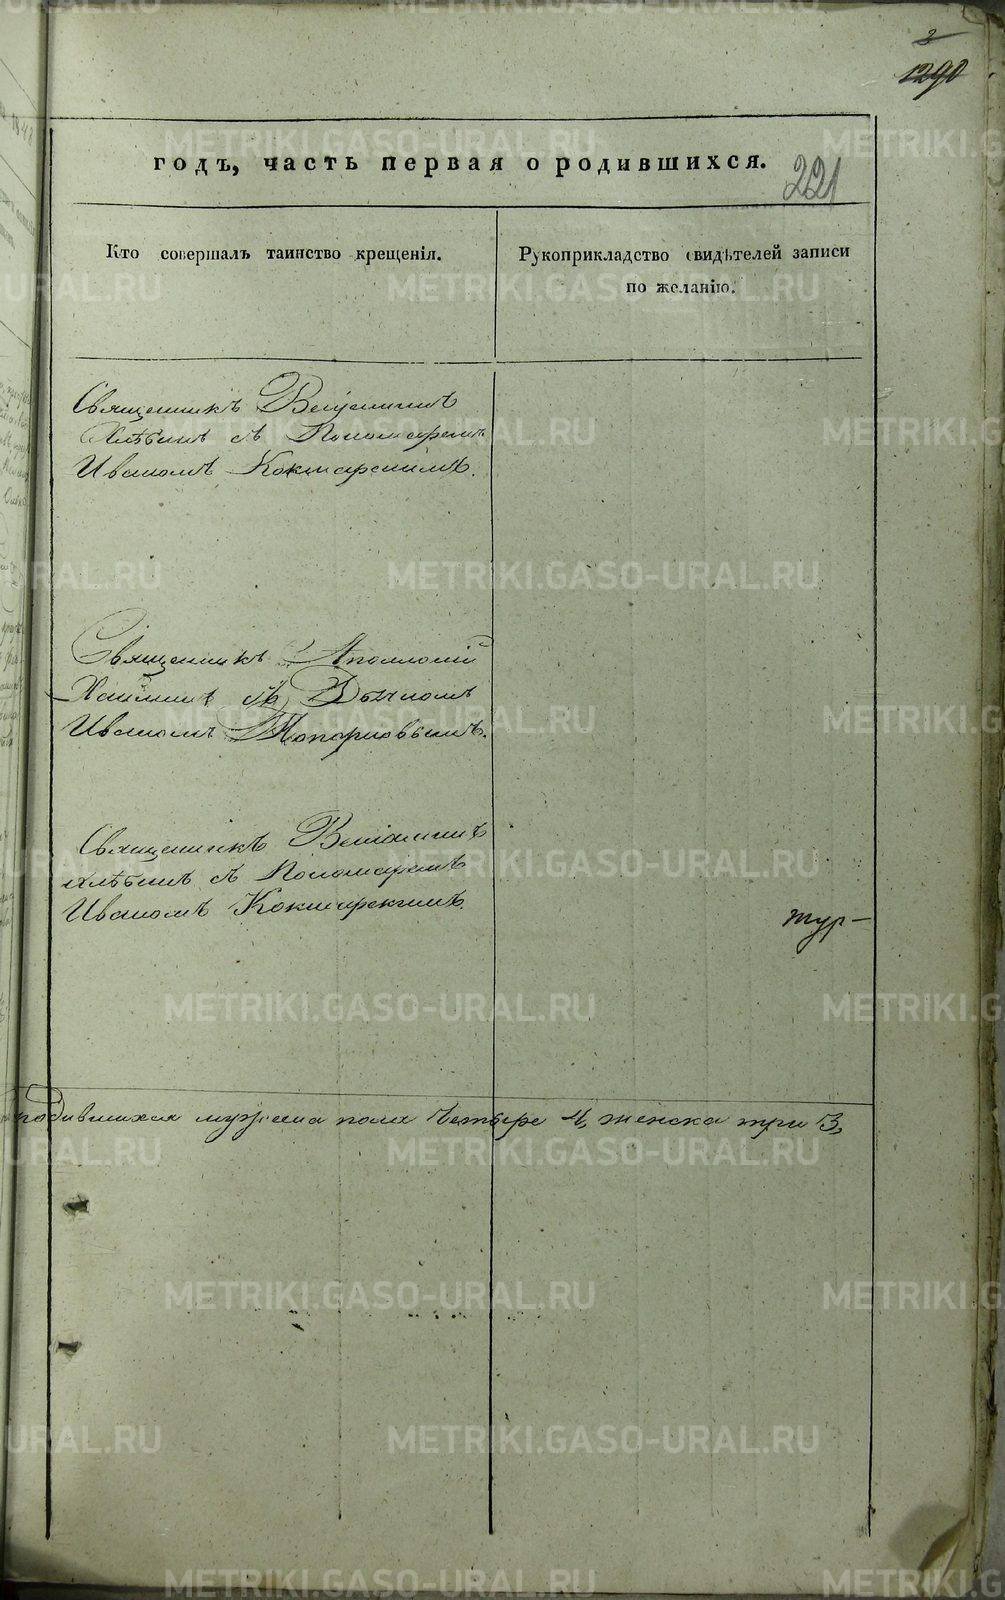 2
1290
годъ, часть первая о родившихся.
221
Кто совершалъ таинство крещенія.
Рукоприкладство свидѣтелей записи
по желанію.
Священникъ Веніаминъ
Хлѣбинъ съ Пономаремъ
Иваномъ Кокшарскимъ.
Священникъ Аполлоній
съ Дьячкомъ
Иваномъ Топорковымъ.
Священникъ Веніаминъ
Хлѣбинъ съ Пономаремъ
Иваномъ Кокшарскимъ.
родившихся мужеска пола четыре 4, женска три 3,
METRIKI.GASO-URAL.RU